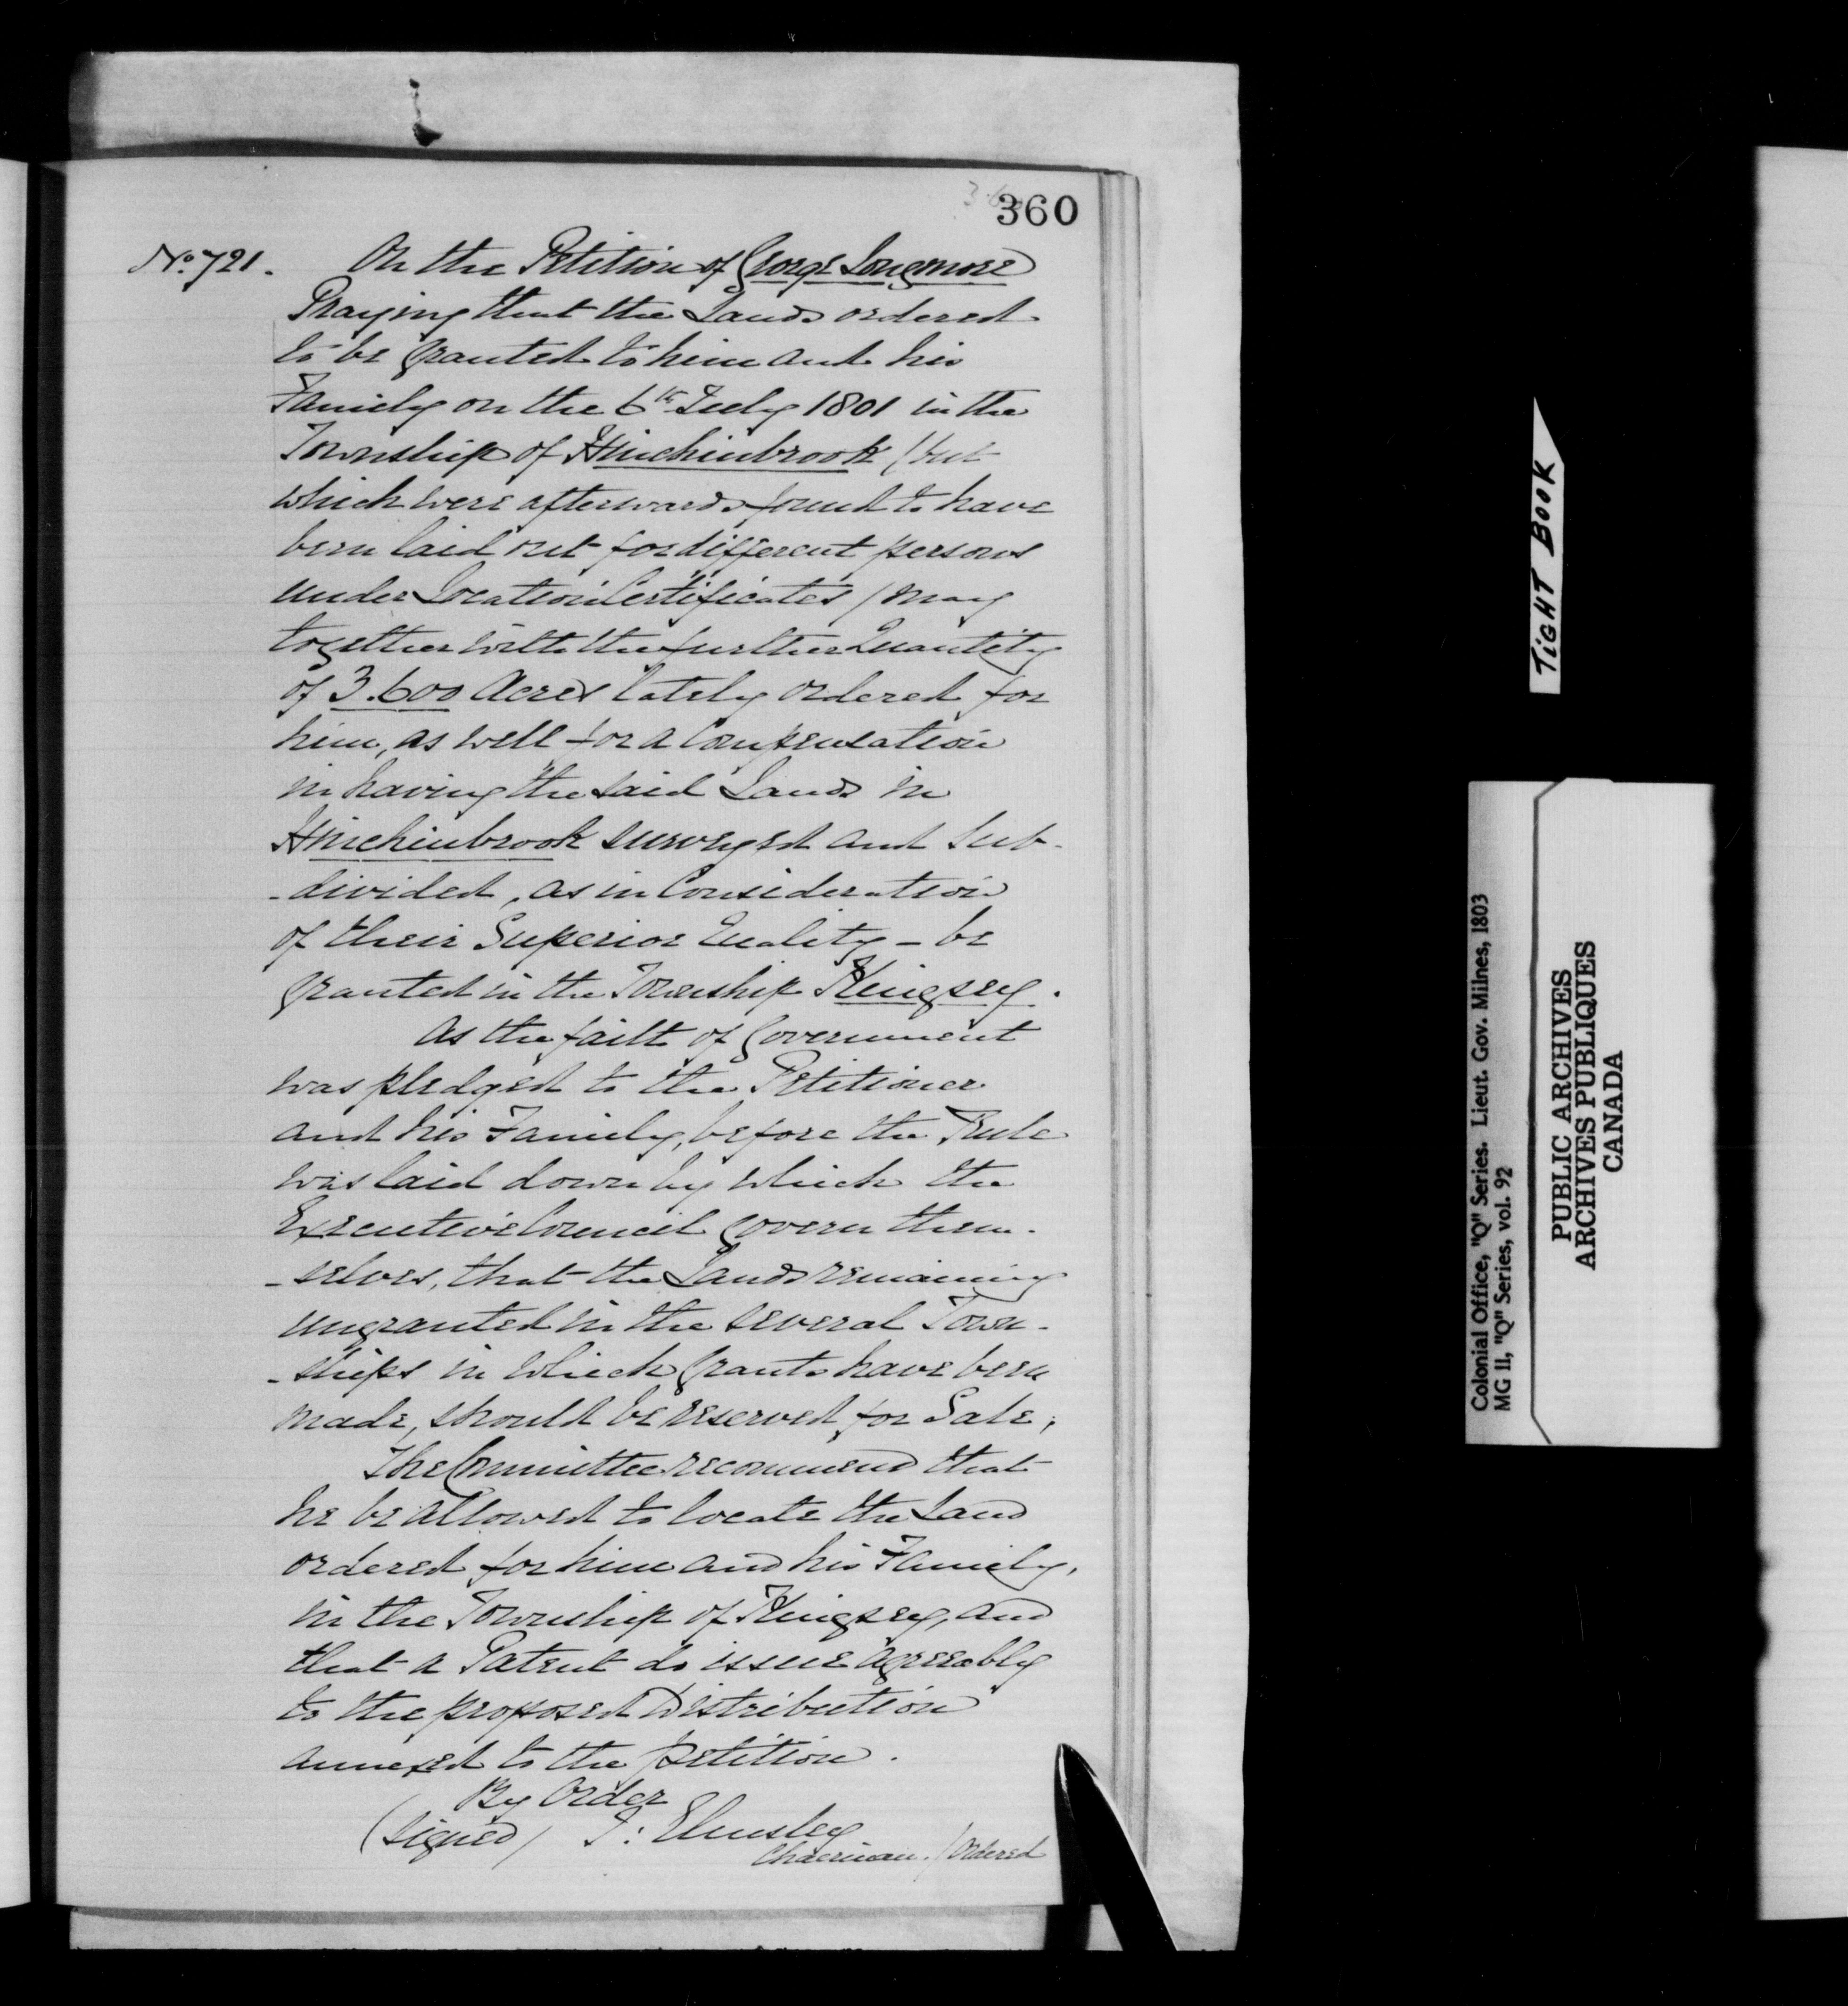 360
No. 721. On the Petition of George Longmore
Praying that the Lands ordered
to be granted to him and his
Family on the 6th July 1801 in the
Township of Hinchinbrook / but
which were afterwards found to have
been laid out for different persons
under Location Certificates / may
together with the further Quantity
of 3.600 Acres lately ordered for
him, as well for a Compensation
in having the said Lands in
Hinchinbrook surveyed and sub-
-divided, as in Consideration
of their Superior Quality - be
granted in the Township Kingsey.
As the faith of Government
was pledged to the Petitioner
and his Family, before the Rule
was laid down by which the
Executive Council govern them-
-selves, that the Lands remaining
ungranted in the several Town-
-ships in which Grants have been
made, should be reserved for Sale;
The Committee recommend that
he be allowed to locate the Land
ordered for him and his Family,
in the Township of Kingsey, and
that a Patent do issue agreeably
to the proposed Distribution
annexed to the petition.
By Order
(signed) J: Elmsley
Chairman. / Ordered
TIGHT BOOK
Colonial Office, "Q" Series. Lieut. Gov. Milnes, 1803
MG 11, "Q" Series, vol. 92
PUBLIC ARCHIVES
ARCHIVES PUBLIQUES
CANADA